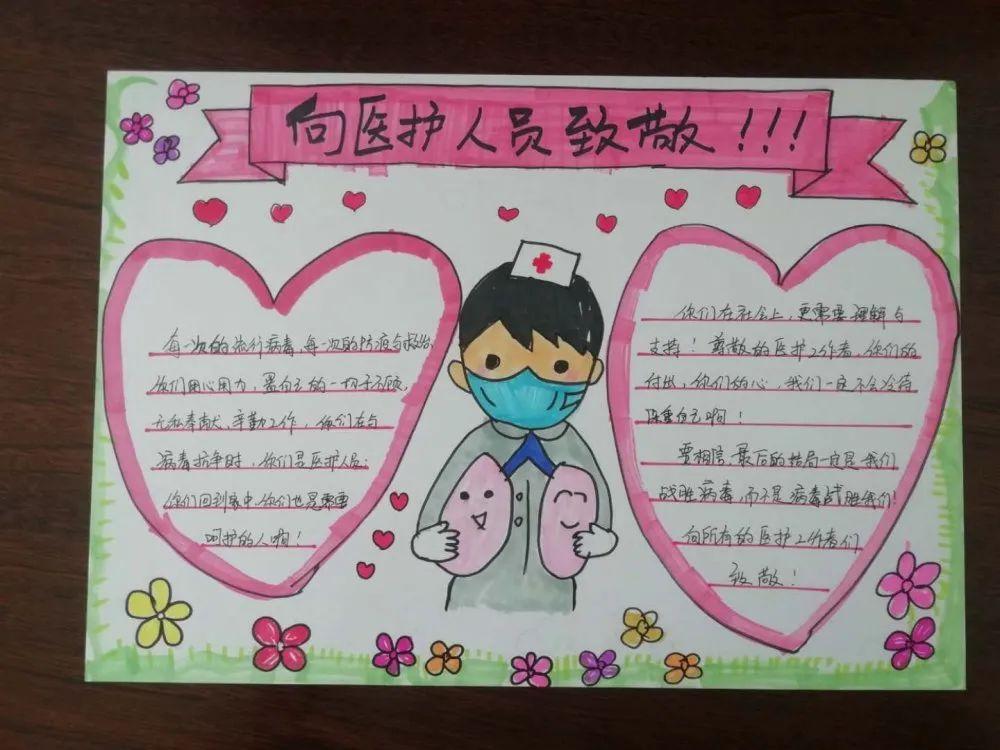 向医护人员致敬！！！
每一次的流行病毒，每一次的防疫与救治，
你们用心用力，置自己的一切于不顾，
无私奉献、辛勤工作，你们在与
病毒抗争时，你们是医护人员；
你们回到家中，你们也是需要
呵护的人啊！
你们在社会上，更需要理解与
支持！尊敬的医护工作者，你们的
付出，你们的心，我们一定不会冷待
珍重自己啊！
要相信，最后的结局一定是我们
战胜病毒，而不是病毒战胜我们！
向所有的医护工作者们
致敬！